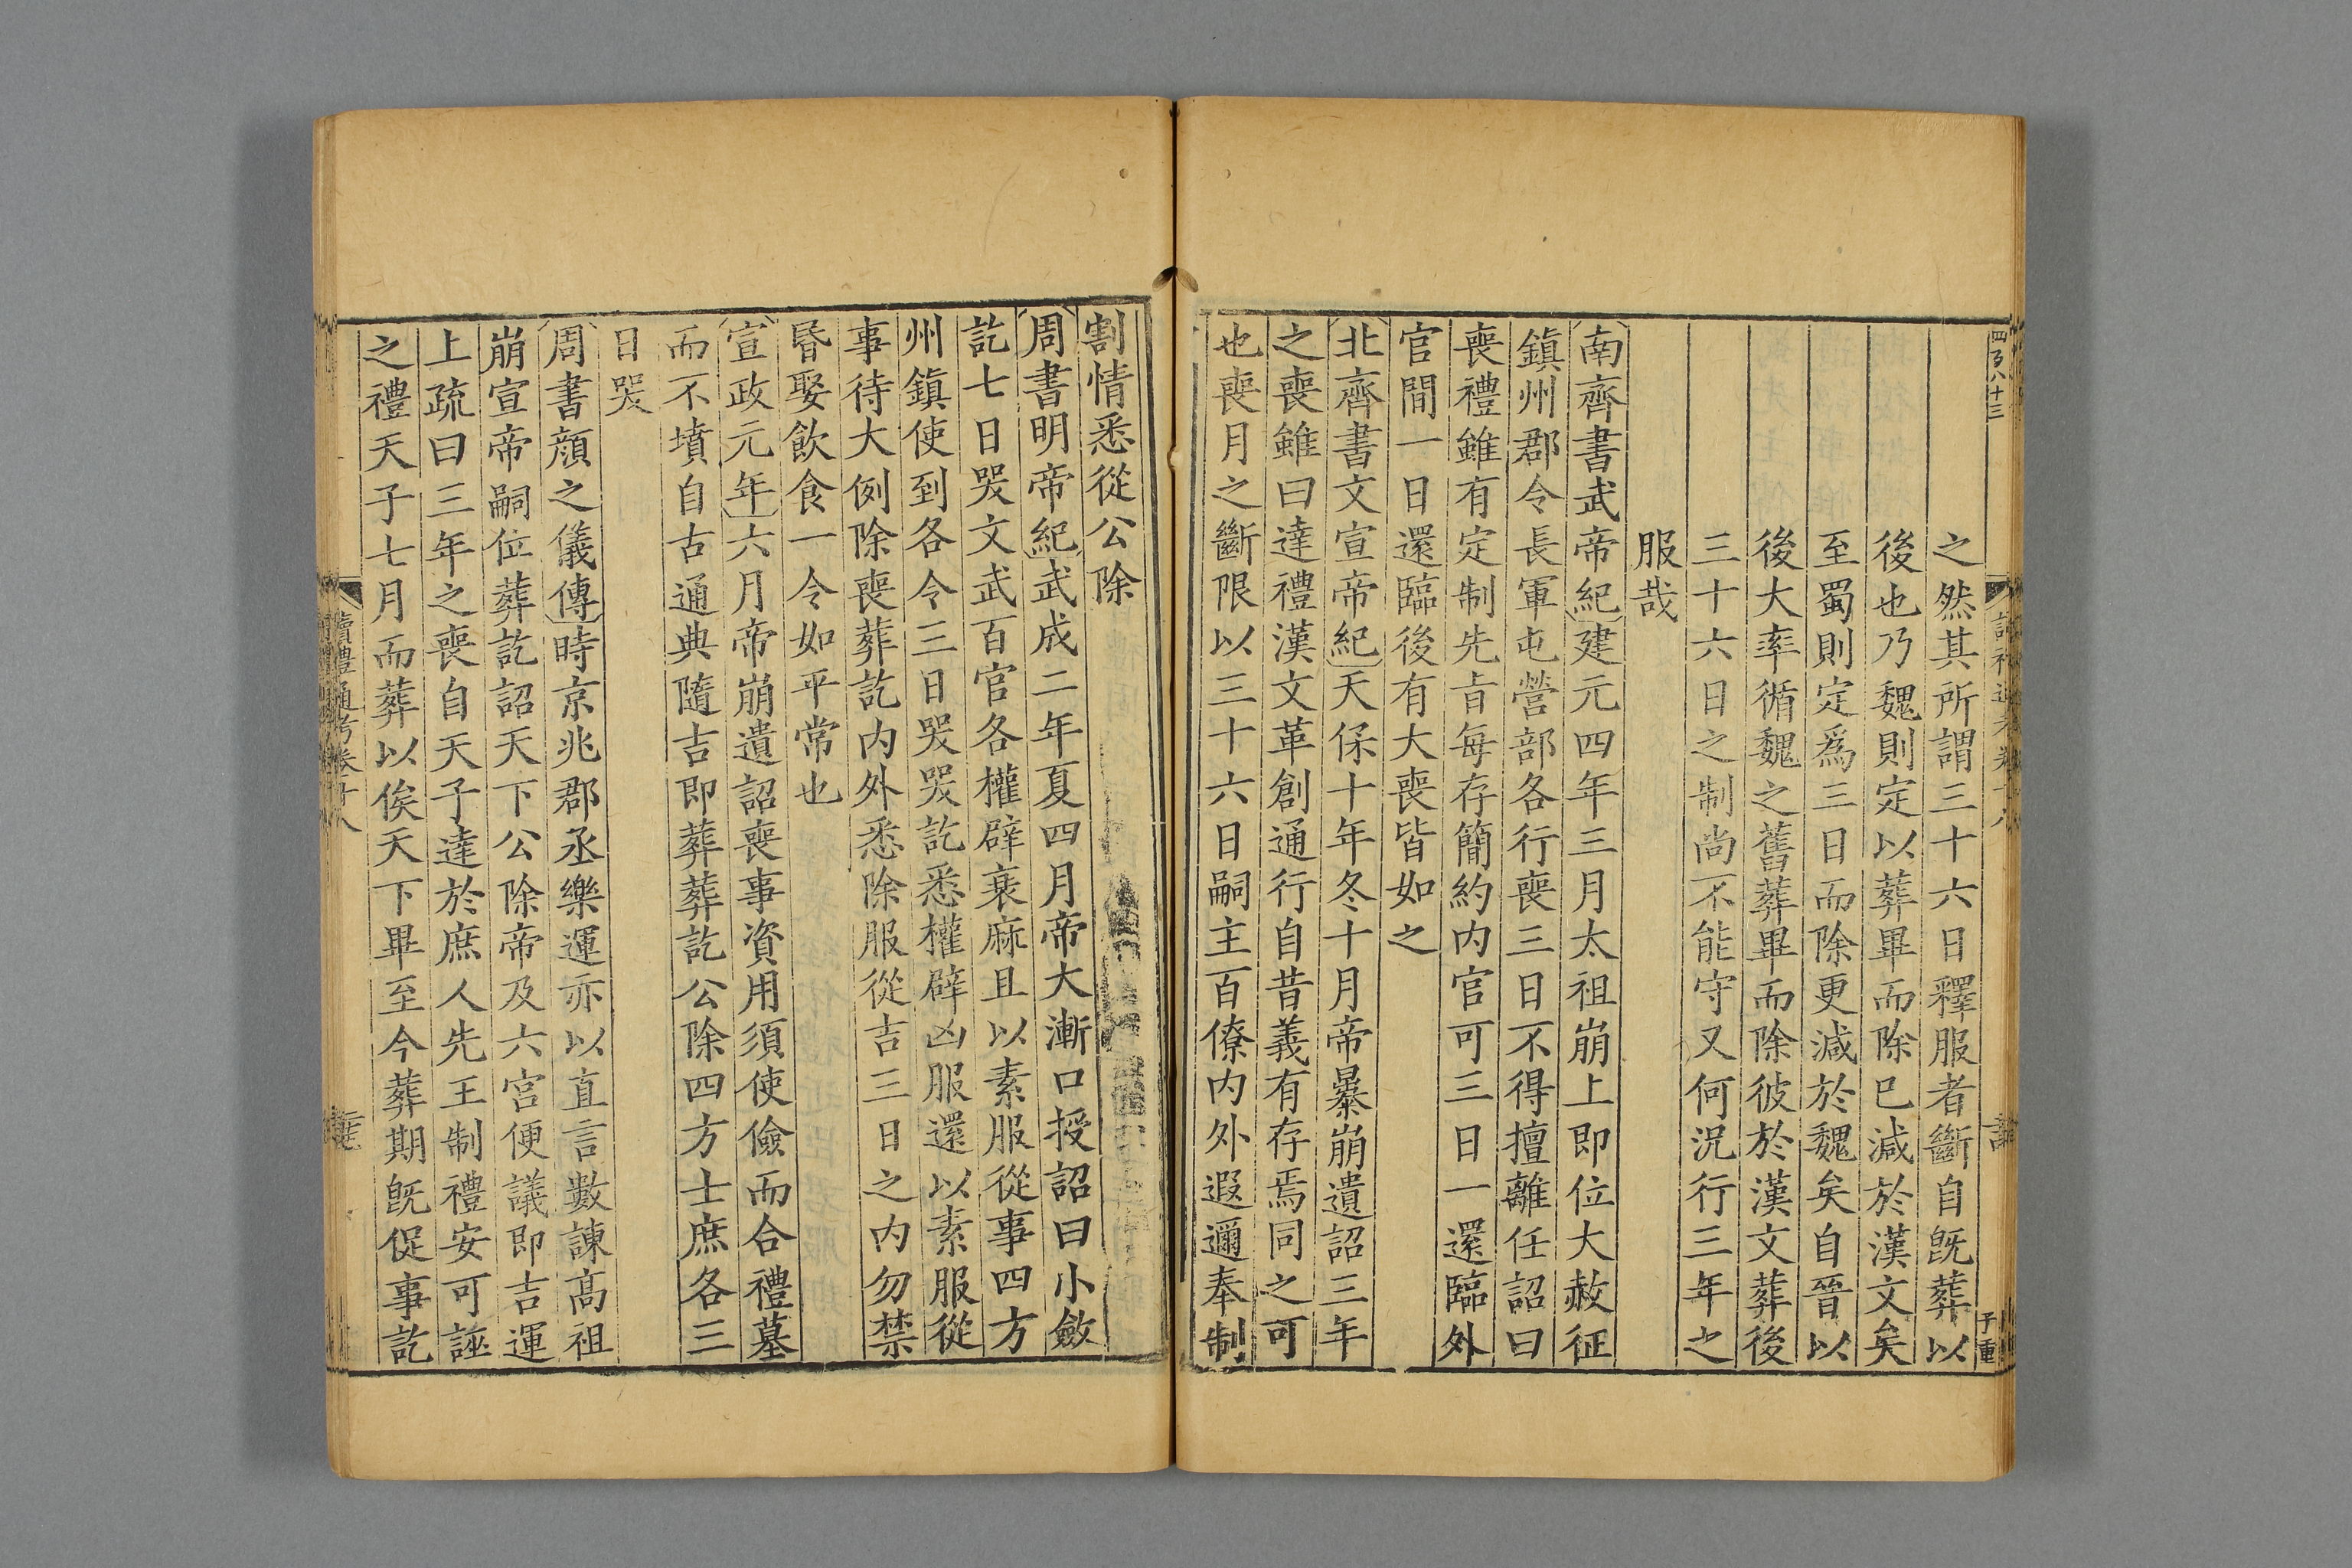 四百八十三
子重
之然其所謂三十六日釋服者斷自旣葬以
後也乃魏則定以葬畢而除已減於漢文矣
至蜀則定爲三日而除更減於魏矣自晉以
後大率循魏之舊葬畢而除彼於漢文葬後
三十六日之制尚不能守又何況行三年之
服哉
南齊書武帝紀建元四年三月太祖崩上即位大赦征
鎮州郡令長軍屯營部各行喪三日不得擅離任詔曰
喪禮雖有定制先㫖每存簡約內官可三日一還臨外
官間一日還臨後有大喪皆如之
北齊書文宣帝紀天保十年冬十月帝暴崩遺詔三年
之喪雖曰達禮漢文革創通行自昔義有存焉同之可
也喪月之斷限以三十六日嗣主百僚內外遐邇奉制
割情悉從公除
周書明帝紀武成二年夏四月帝大漸口授詔曰小斂
訖七日哭文武百官各權辟衰麻且以素服從事四方
州鎮使到各令三日哭哭訖悉權辟凶服還以素服從
事待大例除喪葬訖內外悉除服從吉三日之內勿禁
昏娶飲食一令如平常也
宣政元年六月帝崩遺詔喪事資用須使儉而合禮墓
而不墳自古通典隨吉即葬葬訖公除四方士庶各三
日哭
周書顏之儀傳時京兆郡丞樂運亦以直言數諫高祖
崩宣帝嗣位葬訖詔天下公除帝及六宮便議即吉運
上疏曰三年之喪自天子達於庶人先王制禮安可誣
之禮天子七月而葬以俟天下畢至今葬期旣促事訖
讀禮通考卷十八